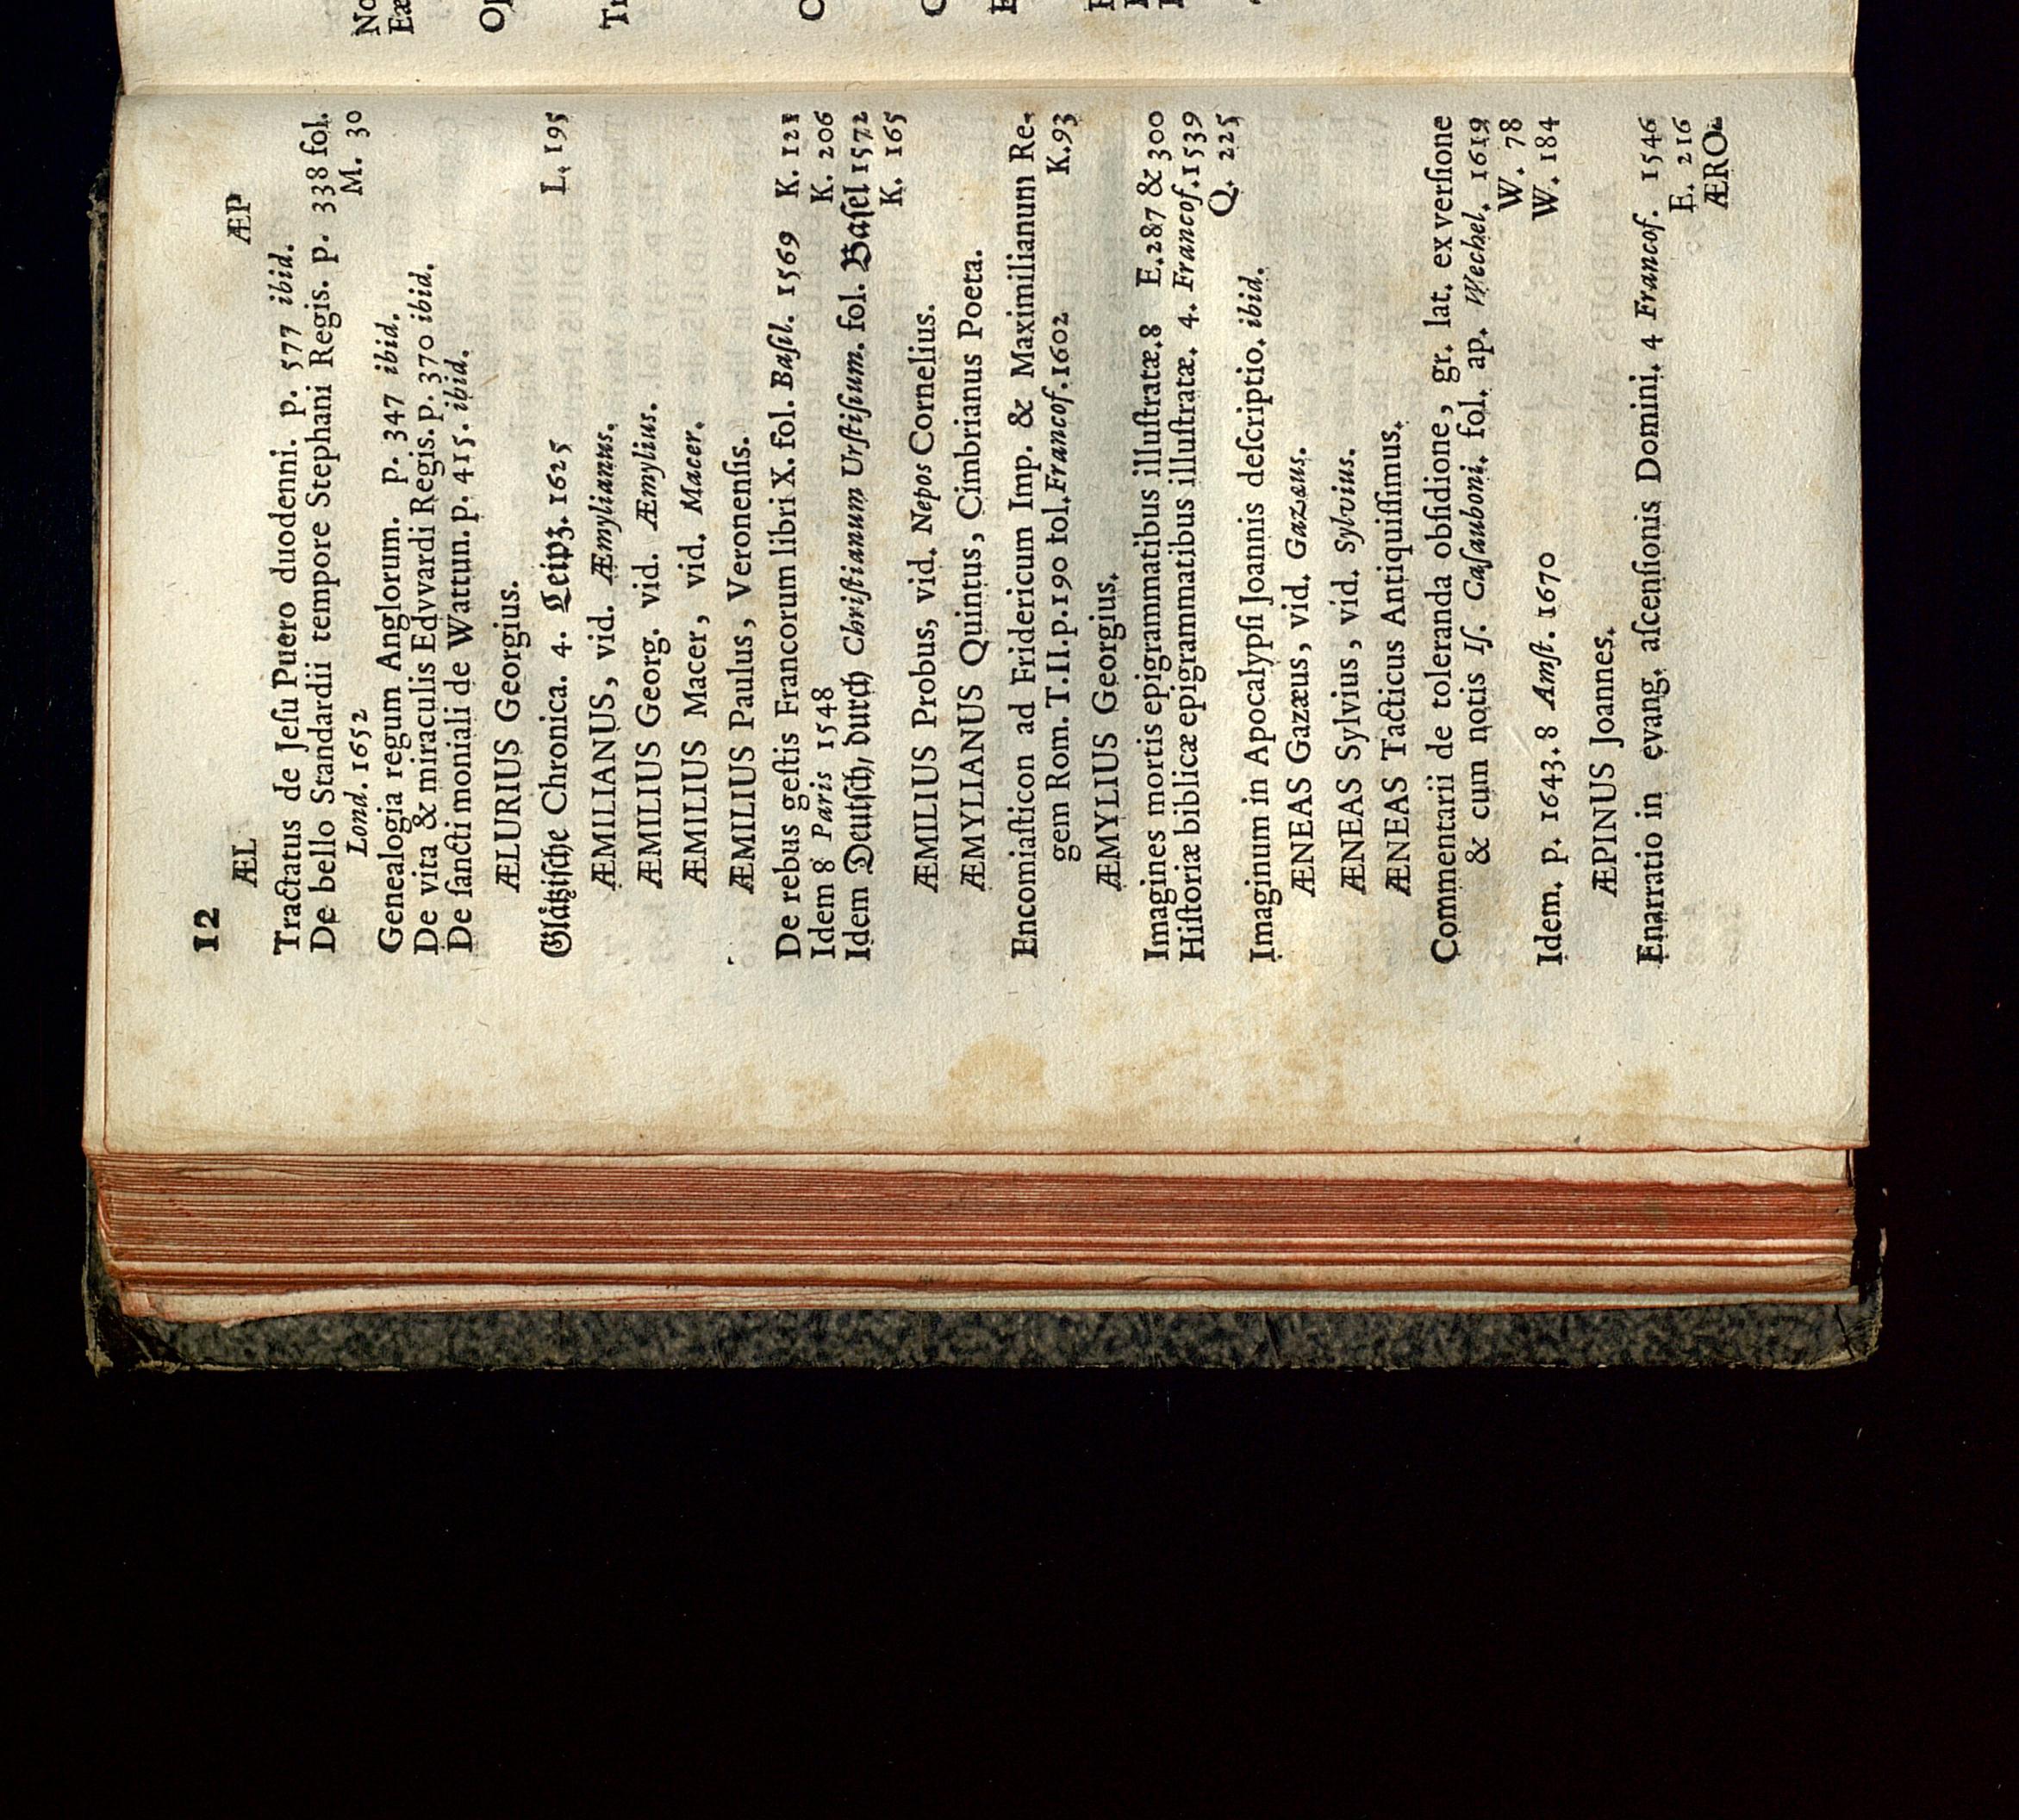 12
ÆL ÆP
Tractatus de Jeſu Puero duodenni. p. 577 ibid.
De bello Standardii tempore Stephani Regis. p. 338 fol.
Lond. 1652 M. 30
Genealogia regum Anglorum. p. 347 ibid.
De vita & miraculis Edvvardi Regis. p. 370 ibid.
De ſancti moniali de Wattun. p. 415. ibid.
ÆLURIUS Georgius.
Glåtziſche Chronica. 4. Leipz. 1625 L. 195
ÆMILIANUS, vid. Æmylianus.
ÆMILIUS Georg. vid. Æmylius.
ÆMILIUS Macer, vid. Macer.
ÆMILIUS Paulus, Veronenſis.
De rebus geſtis Francorum libri X. fol. Baſil. 1569 K. 121
Idem 8 Paris 1548 K. 206
Idem Deutſch, durch Chriſtianum Urſtiſium. fol. Baſel 1572
K. 165
ÆMILIUS Probus, vid. Nepos Cornelius.
ÆMYLIANUS Quintus, Cimbrianus Poeta.
Encomiaſticon ad Fridericum Imp. & Maximilianum Re-
gem Rom. T. II. p. 190 fol. Francof. 1602 K. 93
ÆMYLIUS Georgius.
Imagines mortis epigrammatibus illuſtratæ. 8 E. 287 & 300
Hiſtoriæ biblicæ epigrammatibus illuſtratæ. 4. Francof. 1539
Q. 225
Imaginum in Apocalypſi Joannis deſcriptio. ibid.
ÆNEAS Gazæus, vid. Gazæus.
ÆNEAS Sylvius, vid. Sylvius.
ÆNEAS Tacticus Antiquiſſimus.
Commentarii de toleranda obſidione, gr. lat. ex verſione
& cum notis Iſ. Caſauboni. fol. ap. Wechel. 1619
W. 78
Idem. p. 1643. 8 Amſt. 1670 W. 184
ÆPINUS Joannes.
Enarratio in evang. aſcenſionis Domini. 4 Francof. 1546
E. 216
ÆRO-